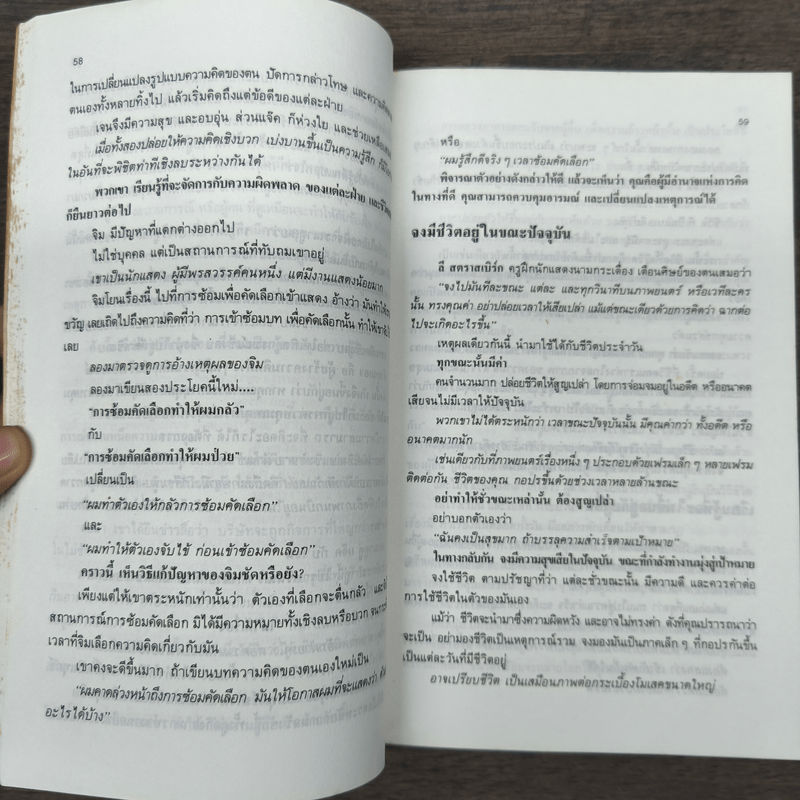 58
ในการเปลี่ยนแปลงรูปแบบความคิดของตน ปัดการกล่าวโทษ และความคิด
ตนเองทั้งหลายทิ้งไป แล้วเริ่มคิดถึงแต่ข้อดีของแต่ละฝ่าย
เจนจึงมีความสุข และอบอุ่น ส่วนแจ๊ค ก็ห่วงใย และช่วยเหลือ
เมื่อทั้งสองปล่อยให้ความคิดเชิงบวก เบ่งบานขึ้นเป็นความรู้สึก
ในอันที่จะพิชิตท่าทีเชิงลบระหว่างกันได้
พวกเขา เรียนรู้ที่จะจัดการกับความผิดพลาด ของแต่ละฝ่าย
ก็ยืนยาวต่อไป
จิม มีปัญหาที่แตกต่างออกไป
ไม่ใช่บุคคล แต่เป็นสถานการณ์ที่ทับถมเขาอยู่
เขาเป็นนักแสดง ผู้มีพรสวรรค์คนหนึ่ง แต่มีงานแสดงน้อยมาก
จิมโยนเรื่องนี้ ไปที่การซ้อมเพื่อคัดเลือกเข้าแสดง อ้างว่า มันทำให้
ขวัญ เลยเถิดไปถึงความคิดที่ว่า การเข้าซ้อมบท เพื่อคัดเลือกนั้น ทำให้
เลย
ลองมาตรวจดูการอ้างเหตุผลของจิม
ลองมาเขียนสองประโยคนี้ใหม่....
"การซ้อมคัดเลือกทำให้ผมกลัว"
กับ
"การซ้อมคัดเลือกทำให้ผมป่วย"
เปลี่ยนเป็น
"ผมทำตัวเองให้กลัวการซ้อมคัดเลือก"
และ
"ผมทำให้ตัวเองจับไข้ ก่อนเข้าซ้อมคัดเลือก"
คราวนี้ เห็นวิธีแก้ปัญหาของจิมชัดหรือยัง?
เพียงแต่ให้เขาตระหนักเท่านั้นว่า ตัวเองที่เลือกจะตื่นกลัว
สถานการณ์การซ้อมคัดเลือก มิได้มีความหมายทั้งเชิงลบหรือบวก
เวลาที่จิมเลือกความคิดเกี่ยวกับมัน
เขาคงจะดีขึ้นมาก ถ้าเขียนบทความคิดของตนเองใหม่เป็น
"ผมคาดล่วงหน้าถึงการซ้อมคัดเลือก มันให้โอกาสผมที่จะแสดงว่า
อะไรได้บ้าง"
59
หรือ
"ผมรู้สึกดีจริง ๆ เวลาซ้อมคัดเลือก"
พิจารณาตัวอย่างดังกล่าวให้ดี แล้วจะเห็นว่า คุณคือผู้มีอำนาจแห่งการคิด
ในทางที่ดี คุณสามารถควบคุมอารมณ์ และเปลี่ยนแปลงเหตุการณ์ได้
จงมีชีวิตอยู่ในขณะปัจจุบัน
ลี สตราสเบิร์ก ครูฝึกนักแสดงนามกระเดื่อง เตือนศิษย์ของตนเสมอว่า
"จงไปมันทีละขณะ แต่ละ และทุกวินาทีบนภาพยนตร์ หรือเวทีละคร
นั้น ทรงคุณค่า อย่าปล่อยเวลาให้เสียเปล่า แม้แต่ขณะเดียวด้วยการคิดว่า ฉากต่อ
ไปจะเกิดอะไรขึ้น"
เหตุผลเดียวกันนี้ นำมาใช้ได้กับชีวิตประจำวัน
ทุกขณะนั้นมีค่า
คนจำนวนมาก ปล่อยชีวิตให้สูญเปล่า โดยการจ่อมจมอยู่ในอดีต หรืออนาคต
เสียจนไม่มีเวลาให้ปัจจุบัน
พวกเขาไม่ได้ตระหนักว่า เวลาขณะปัจจุบันนั้น มีคุณค่ากว่า ทั้งอดีต หรือ
อนาคตมากนัก
เช่นเดียวกับที่ภาพยนตร์เรื่องหนึ่ง ๆ ประกอบด้วยเฟรมเล็ก ๆ หลายเฟรม
ติดต่อกัน ชีวิตของคุณ กอปรขึ้นด้วยช่วงเวลาหลายล้านขณะ
อย่าทำให้ชั่วขณะเหล่านั้น ต้องสูญเปล่า
อย่าบอกตัวเองว่า
"ฉันคงเป็นสุขมาก ถ้าบรรลุความสำเร็จตามเป้าหมาย"
ในทางกลับกัน จงมีความสุขเสียในปัจจุบัน ขณะที่กำลังทำงานมุ่งสู่เป้าหมาย
จงใช้ชีวิต ตามปรัชญาที่ว่า แต่ละชั่วขณะนั้น มีความดี และควรค่าต่อ
การใช้ชีวิตในตัวของมันเอง
แม้ว่า ชีวิตจะนำมาซึ่งความผิดหวัง และอาจไม่ทรงค่า ดังที่คุณปรารถนาว่า
จะเป็น อย่ามองชีวิตเป็นเหตุการณ์รวม จงมองมันเป็นภาคเล็ก ๆ ที่กอปรกันขึ้น
เป็นแต่ละวันที่มีชีวิตอยู่
อาจเปรียบชีวิต เป็นเสมือนภาพต่อกระเบื้องโมเสคขนาดใหญ่